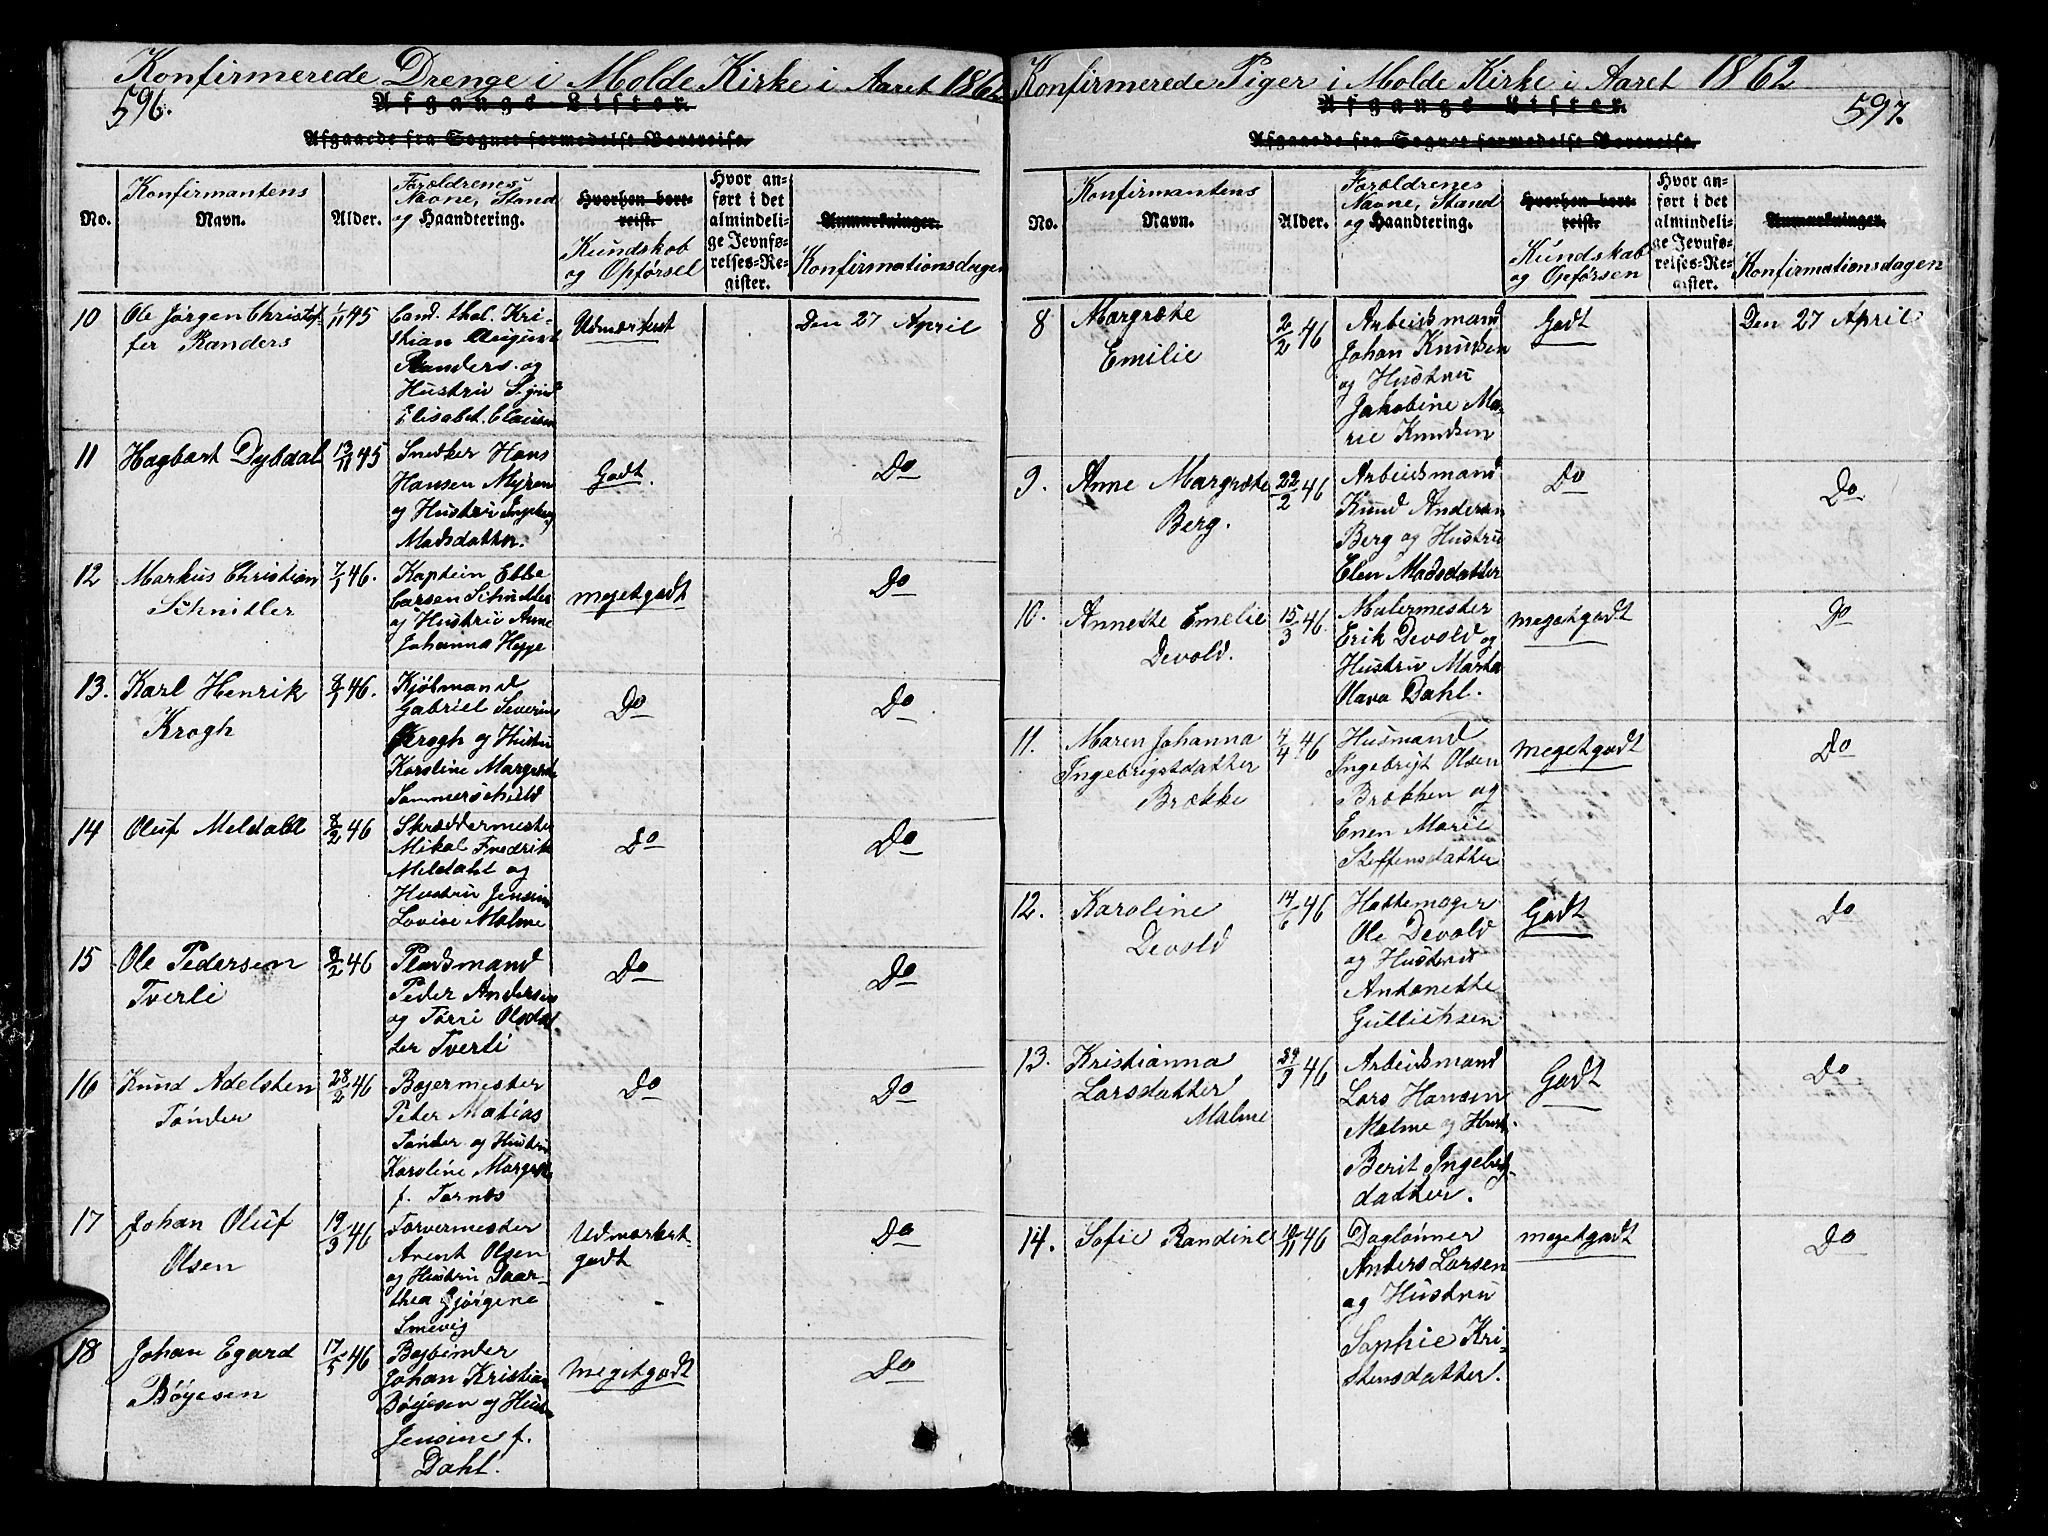 Konfirmerede Drenge i Molde Kirke i Aaret 1862
596.
Afgangs-Lister.
Afgaaede fra Sognet formedelst Bortreise.
No.
Konfirmantens
Navn.
Alder.
Forældrenes
Navne, Stand
og Haandtering.
Hvorhen bort-
reist.
Kundskab
og Opførsel
Hvor an-
ført i det
almindeli-
ge Jevnfø-
relses-Re-
gister.
Anmærkninger.
Konfirmationsdagen
10
Ole Jørgen Christof-
fer Randers
1/11 45
Cand. theol. Kri-
stian August
Randers og
Hustru Sigrid
Elisabet Clausen
Udmærket
Den 27 April
11
Hagbart Dybdal
13/11 45
Snedker Hans
Hansen Myren
og Hustru Ingeborg
Madsdatter.
Godt.
Do
12
Markus Christian
Schnitler
7/1 46.
Kaptein Ebbe
Carsen Schnitler
og Hustru Anne
Johanna Hegge
megetgodt
Do
13.
Karl Henrik
Krogh
8/1 46.
Kjøbmand
Gabriel Severin
Krogh og Hustru
Karoline Margrete
Sommerschield
Do
Do
14
Oluf Meldahl
8/2 46
Skræddermester
Mikal Fredrik
Meldahl og
Hustru Jensine
Lovise Malme
Do
Do
15
Ole Pedersen
Tverli
9/2 46
Pladsmand
Peder Andersen
og Torri Olsdat
ter Tverli
Do
Do
16
Knud Adelsten
Tønder
28/2 46
Bagermester
Peter Matias
Tønder og Hustru
Karoline Margrete
f. Tornæs
Do
Do
17
Johan Oluf
Olsen
19/3 46
Farvermester
Arent Olsen
og Hustru Daar-
thea Gjørgine
Smevig
Udmærket-
godt
Do
18
Johan Egard
Bøyesen
17/5 46
Bogbinder
Johan Kristian
Bøyesen og Hustru
Jensine f.
Dahl.
Megetgodt
Do
Konfirmerede Piger i Molde Kirke i Aaret 1862
597.
Afgangs-Lister.
Afgaaede fra Sognet formedelst Bortreise.
No.
Konfirmantens
Navn.
Alder.
Forældrenes
Navne, Stand
og Haandtering.
Hvorhen bort-
reist.
Kundskab
og Opførsen
Hvor an-
ført i det
almindeli-
ge Jevnfø-
relses-Re-
gister.
Anmærkninger.
Konfirmationsdagen
8
Margrete
Emilie
2/2 46
Arbeidsmand
Johan Knudsen
og Hustru
Jakobine Ma-
rie Knudsen
Godt
Den 27 April
9.
Anne Margrete
Berg.
22/2 46
Arbeidsmand
Knud Andersen
Berg og Hustru
Elen Madsdatter
Do
Do
10.
Annette Emelie
Devold.
15/3 46
Malermester
Erik Devold og
Hustru Marta
Olava Dahl.
megetgodt
Do
11.
Maren Johanna
Ingebrigtsdatter
Brække
4/4 46
Husmand
Ingebrigt Olsen
Brækken og
Enen Marie
Steffensdatter
megetgodt
Do
12.
Karoline
Devold
14/6 46
Hattemager
Ole Devold
og Hustru
Antonette
Gullichsen
Godt
Do
13.
Kristianna
Larsdatter
Malme
29/3 46
Arbeidsmand
Lars Hansen
Malme og Hust.
Berit Ingebrigt-
datter.
Godt
Do
14.
Sofie Randine
10/11 46
Daglønner
Anders Larsen
og Hustru
Sophie Kri-
stensdatter.
megetgodt
Do